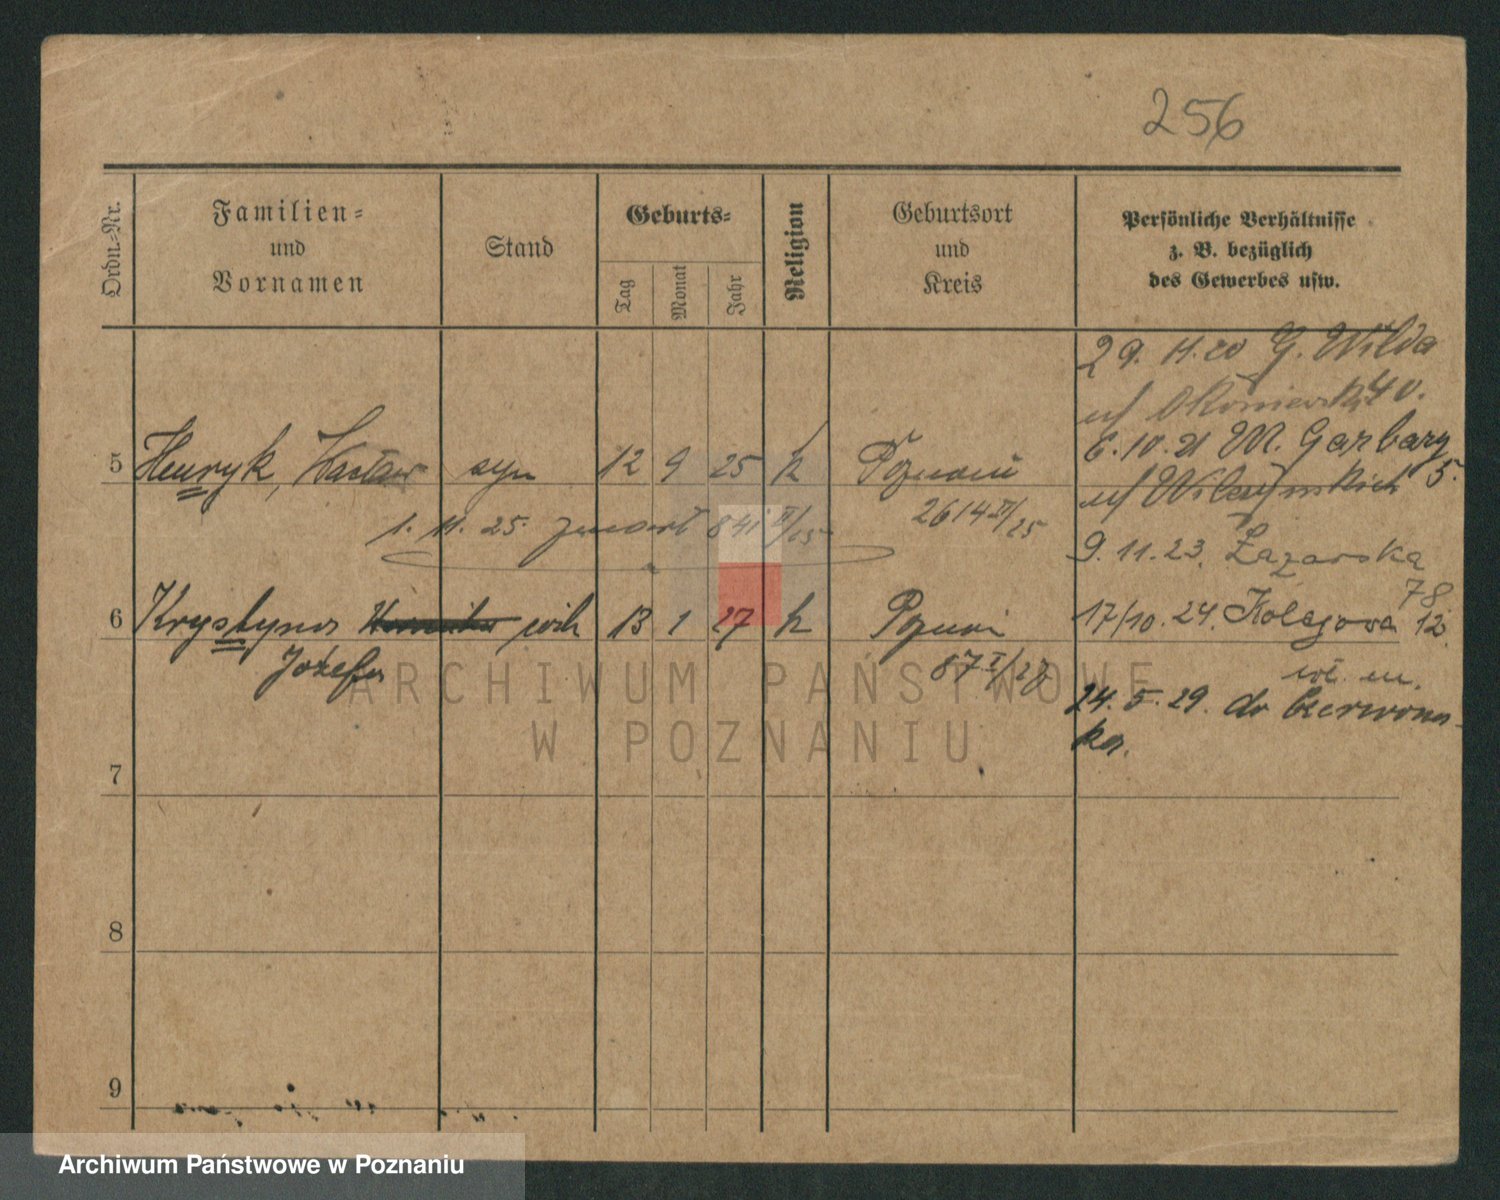 256
Ordn.=Nr.
Familien=
und
Vornamen
Stand
Geburts=
Tag
Monat
Jahr
Religion
Geburtsort
und
Kreis
Persönliche Verhältnisse
z. B. bezüglich
des Gewerbes usw.
29. 11. 20 G. Wilda
40.
6. 10. 21 M. Garbary
5.
9. 11. 23. Łazarska
78
17/10. 24. Kolejowa 12.
wł. m.
24. 5. 29. do Czerwono-
ka.
5 Henryk, Wacław syn 12 9 25 k Poznań
2614 II/25
1. 11. 25. zmarł 841 II/25
6 Krystyna córk 13 1 27 k Poznań
Józefa
87 I/27
7
8
9
ARCHIWUM PAŃSTWOWE
W POZNANIU
Archiwum Państwowe w Poznaniu